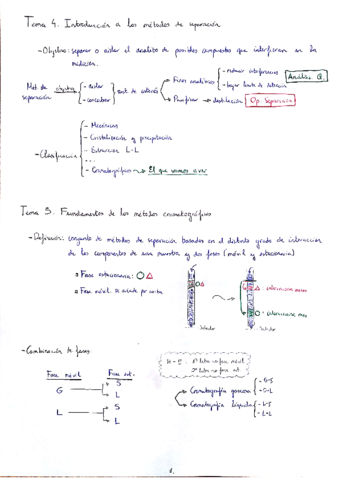 Tema 4. Introducción a los métodos de separación
- Objetivo: separar o aislar el analito de posibles compuestos que interfieran en la medición.
Mét. de separación
objetivo
- aislar
- concentrar
sust. de interés
Fines analíticos
- reducir interferencias
- bajar límite de detección
Análisis Q.
Purificar → destilación
Op. Separación
- Clasificación
- Mecánicos
- Cristalización y precipitación
- Extracción L-L
- ...
- Cromatográficos → El que vamos a ver
Tema 5. Fundamentos de los métodos cromatográficos
- Definición: conjunto de métodos de separación basados en el distinto grado de interacción
de los componentes de una muestra y dos fases (móvil y estacionaria)
Fase estacionaria:
Fase móvil
- interacciona menos
- interacciona más
Detector
Detector
- Combinación de fases
Fase móvil
Fase est.
G
S
L
L
S
L
1ª letra → fase móvil
2ª letra → fase est.
Cromatografía gaseosa
- G-S
- G-L
Cromatografía líquida
- L-S
- L-L
1.